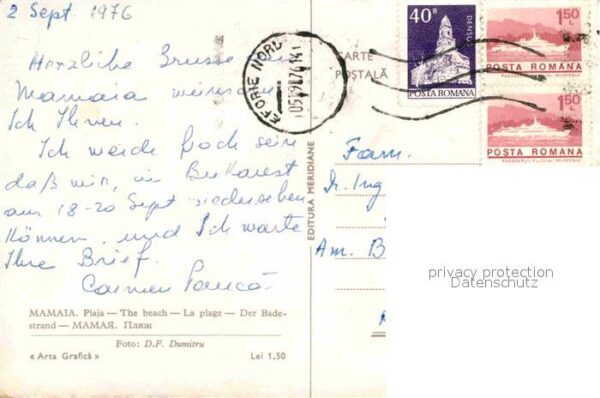 2 Sept. 1976
Herzliche Grüsse aus
Mamaia wünsche
Ich Ihnen.
Ich werde froh sein
daß wir, in Bukarest
am 18-20 Sept wiedersehen
können, und Ich warte
Ihre Brief.
Carmen
MAMAIA. Plaja — The beach — La plage — Der Bade-
strand — МАМАЯ. Пляж
Foto: D.F. Dumitru
« Arta Grafică » Lei 1,50
EDITURA MERIDIANE
CARTE
POȘTALĂ
EFORIE NORD
40 B
DENSUȘ
POSTA ROMANA
1,50 L
POSTA ROMANA
1,50 L
POSTA ROMANA
Fam.
Ing
Am. B
privacy protection
Datenschutz